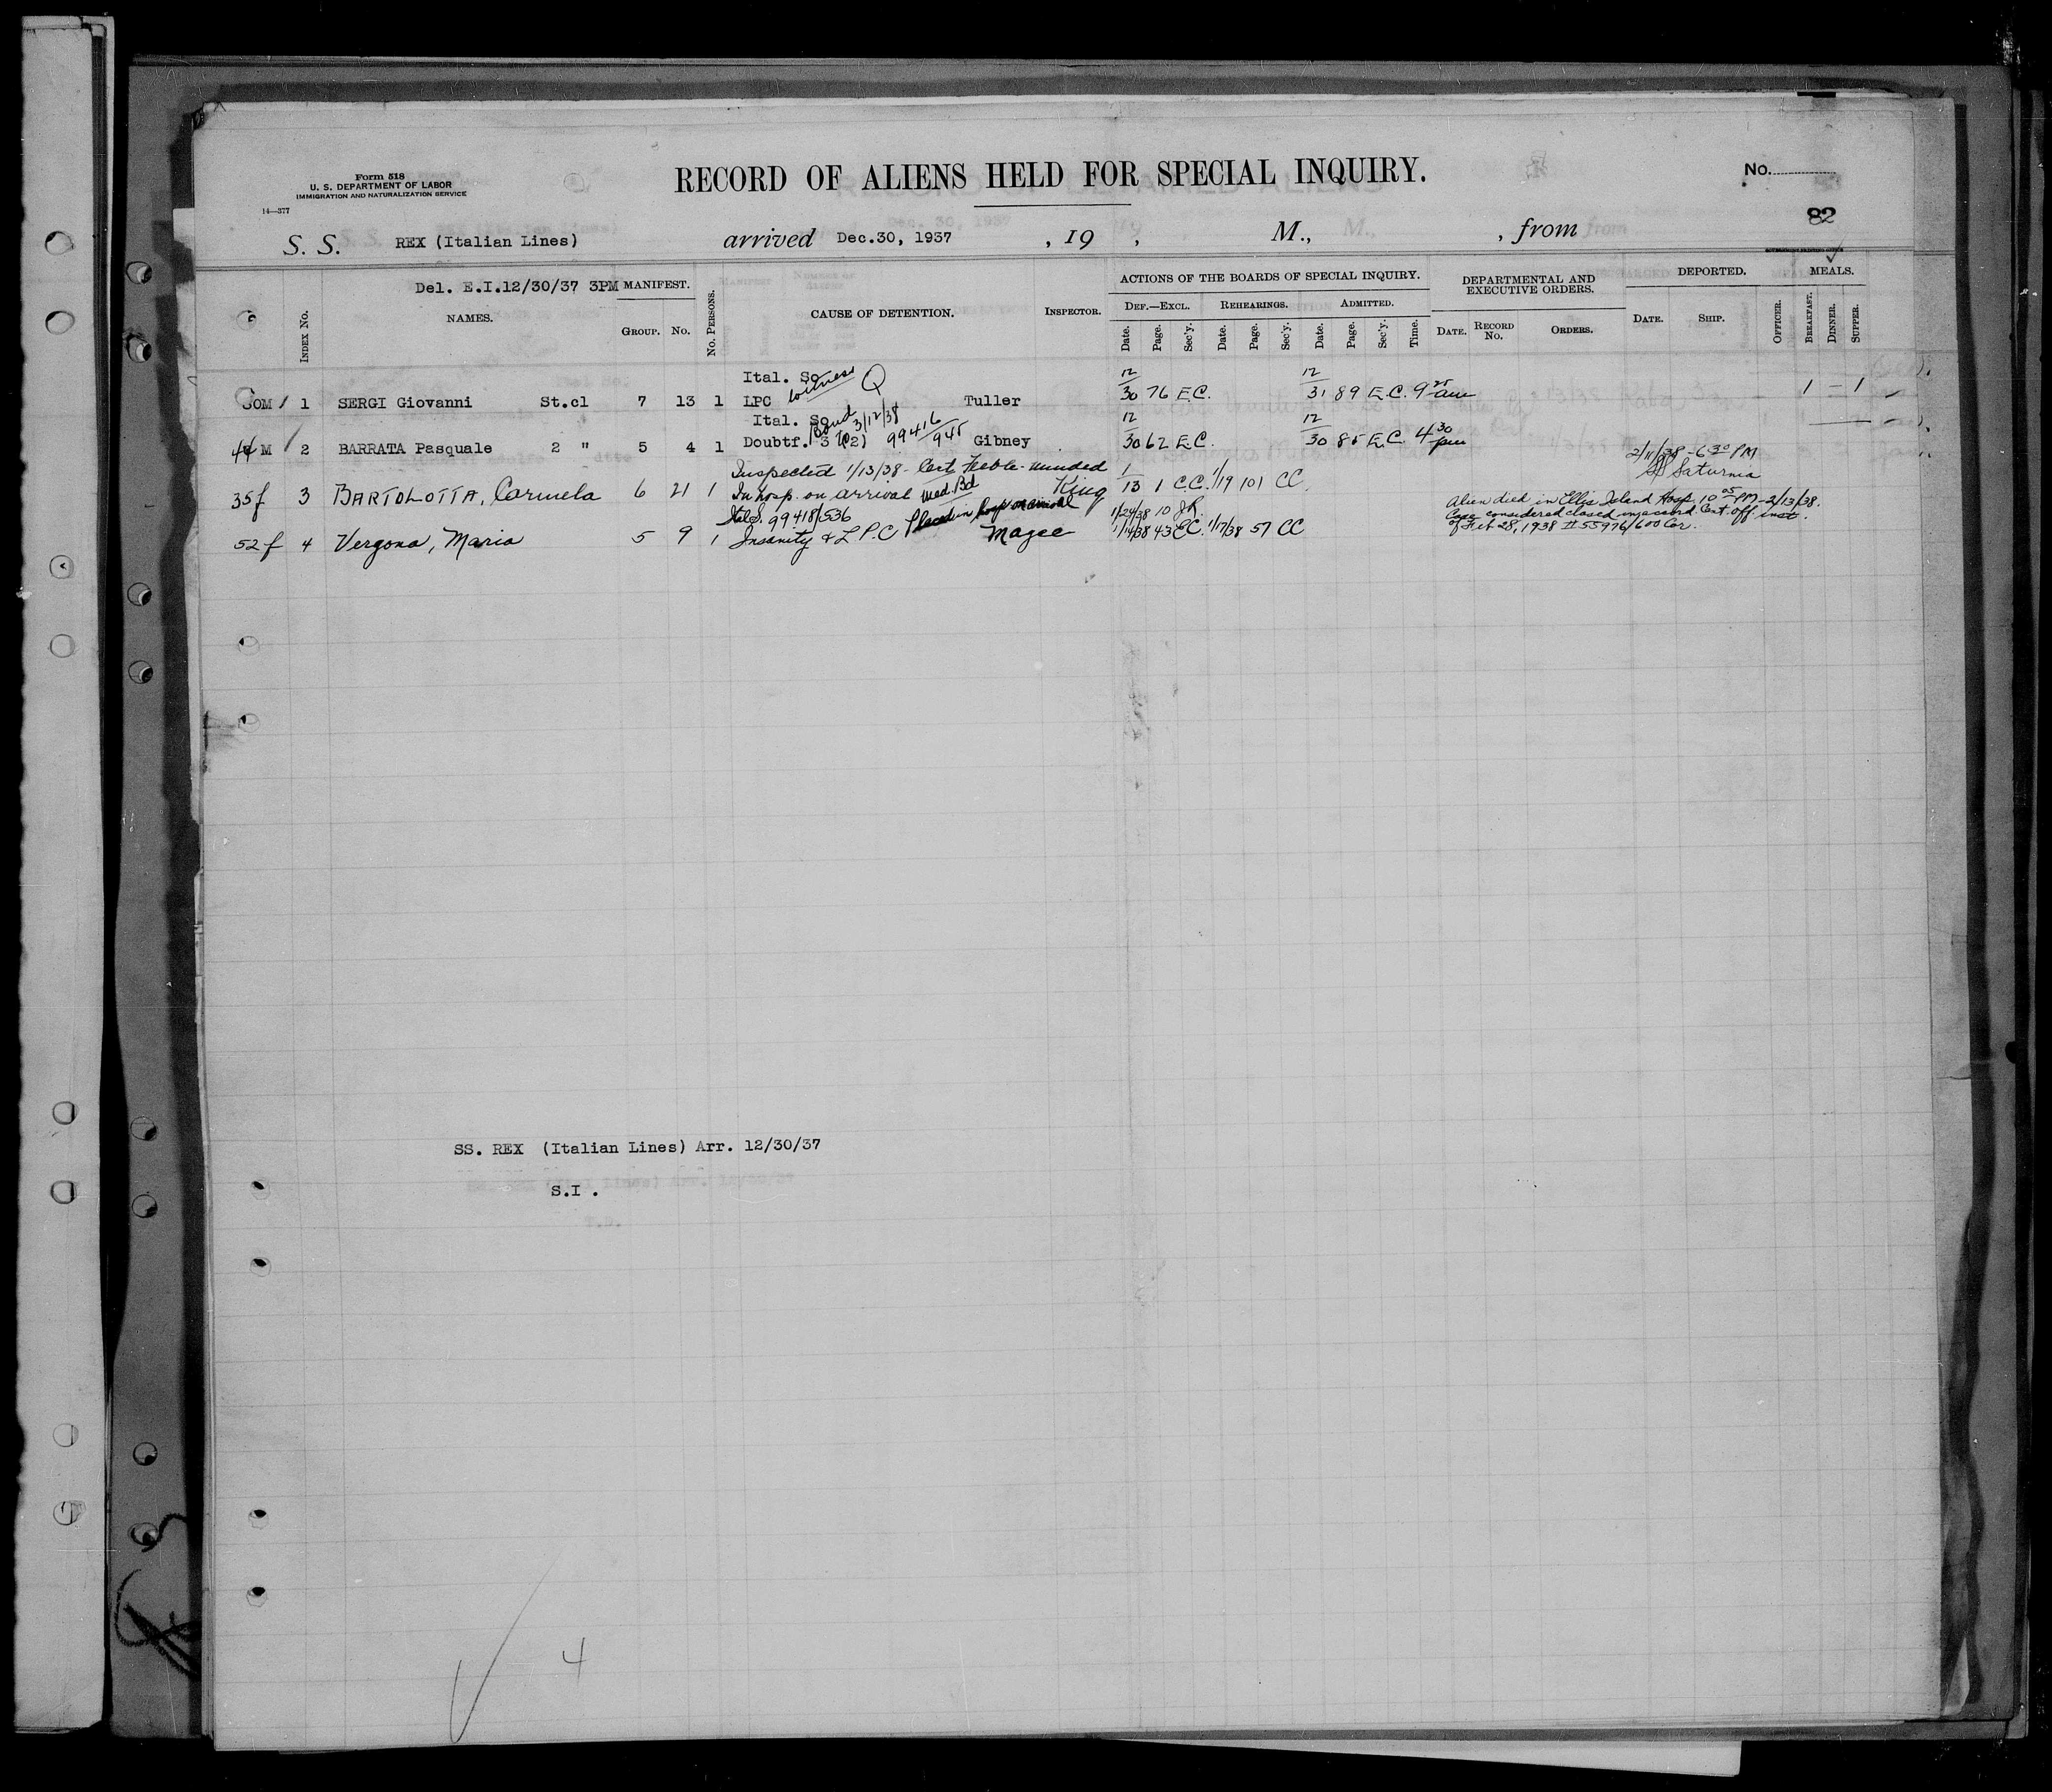 Form 518
U. S. DEPARTMENT OF LABOR
IMMIGRATION AND NATURALIZATION SERVICE
14—377
RECORD OF ALIENS HELD FOR SPECIAL INQUIRY.
No.
82
S. S. REX (Italian Lines) arrived Dec.30, 1937 , 19 , M., , from
Del. E.I.12/30/37 3PM
INDEX No. NAMES. MANIFEST. GROUP. No. No. PERSONS. CAUSE OF DETENTION. INSPECTOR. ACTIONS OF THE BOARDS OF SPECIAL INQUIRY. DEF.—EXCL. Date. Page. Sec'y. REHEARINGS. Date. Page. Sec'y. ADMITTED. Date. Page. Sec'y. Time. DEPARTMENTAL AND EXECUTIVE ORDERS. DATE. RECORD No. ORDERS. DEPORTED. DATE. SHIP. OFFICER. MEALS. BREAKFAST. DINNER. SUPPER.
Ital. So witness Q
30M 1 SERGI Giovanni St.cl 7 13 1 LPC Tuller 12/30 76 E.C. 12/31 89 E.C. 9 25 am 1 – 1
Ital. So Bond 3/12/38
M 2 BARRATA Pasquale 2 " 5 4 1 Doubtf. 3 (2) 99416/945 Gibney 12/30 62 E.C. 12/30 85 E.C. 4 30 pm
Inspected 1/13/38 - Cert Feeble-minded 2/11/38 - 6 30 PM
35f 3 BARTOLOTTA, Carmela 6 21 1 In hosp. on arrival Med. Bd King 1/13 1 C.C. 1/19 101 CC SS Saturnia
Ital S. 99418/536 Placed in hosp on arrival 1/24/38 10 JR.
52f 4 Vergona, Maria 5 9 1 Insanity & L P.C Magee 1/14/38 43 EC. 1/17/38 57 CC
Alien died in Ellis Island Hosp 10 05 PM - 2/13/38.
Case considered closed in accord. Cent. Off. inst.
of Feb 28, 1938 # 55976/600 Cer.
SS. REX (Italian Lines) Arr. 12/30/37
S.I .
4